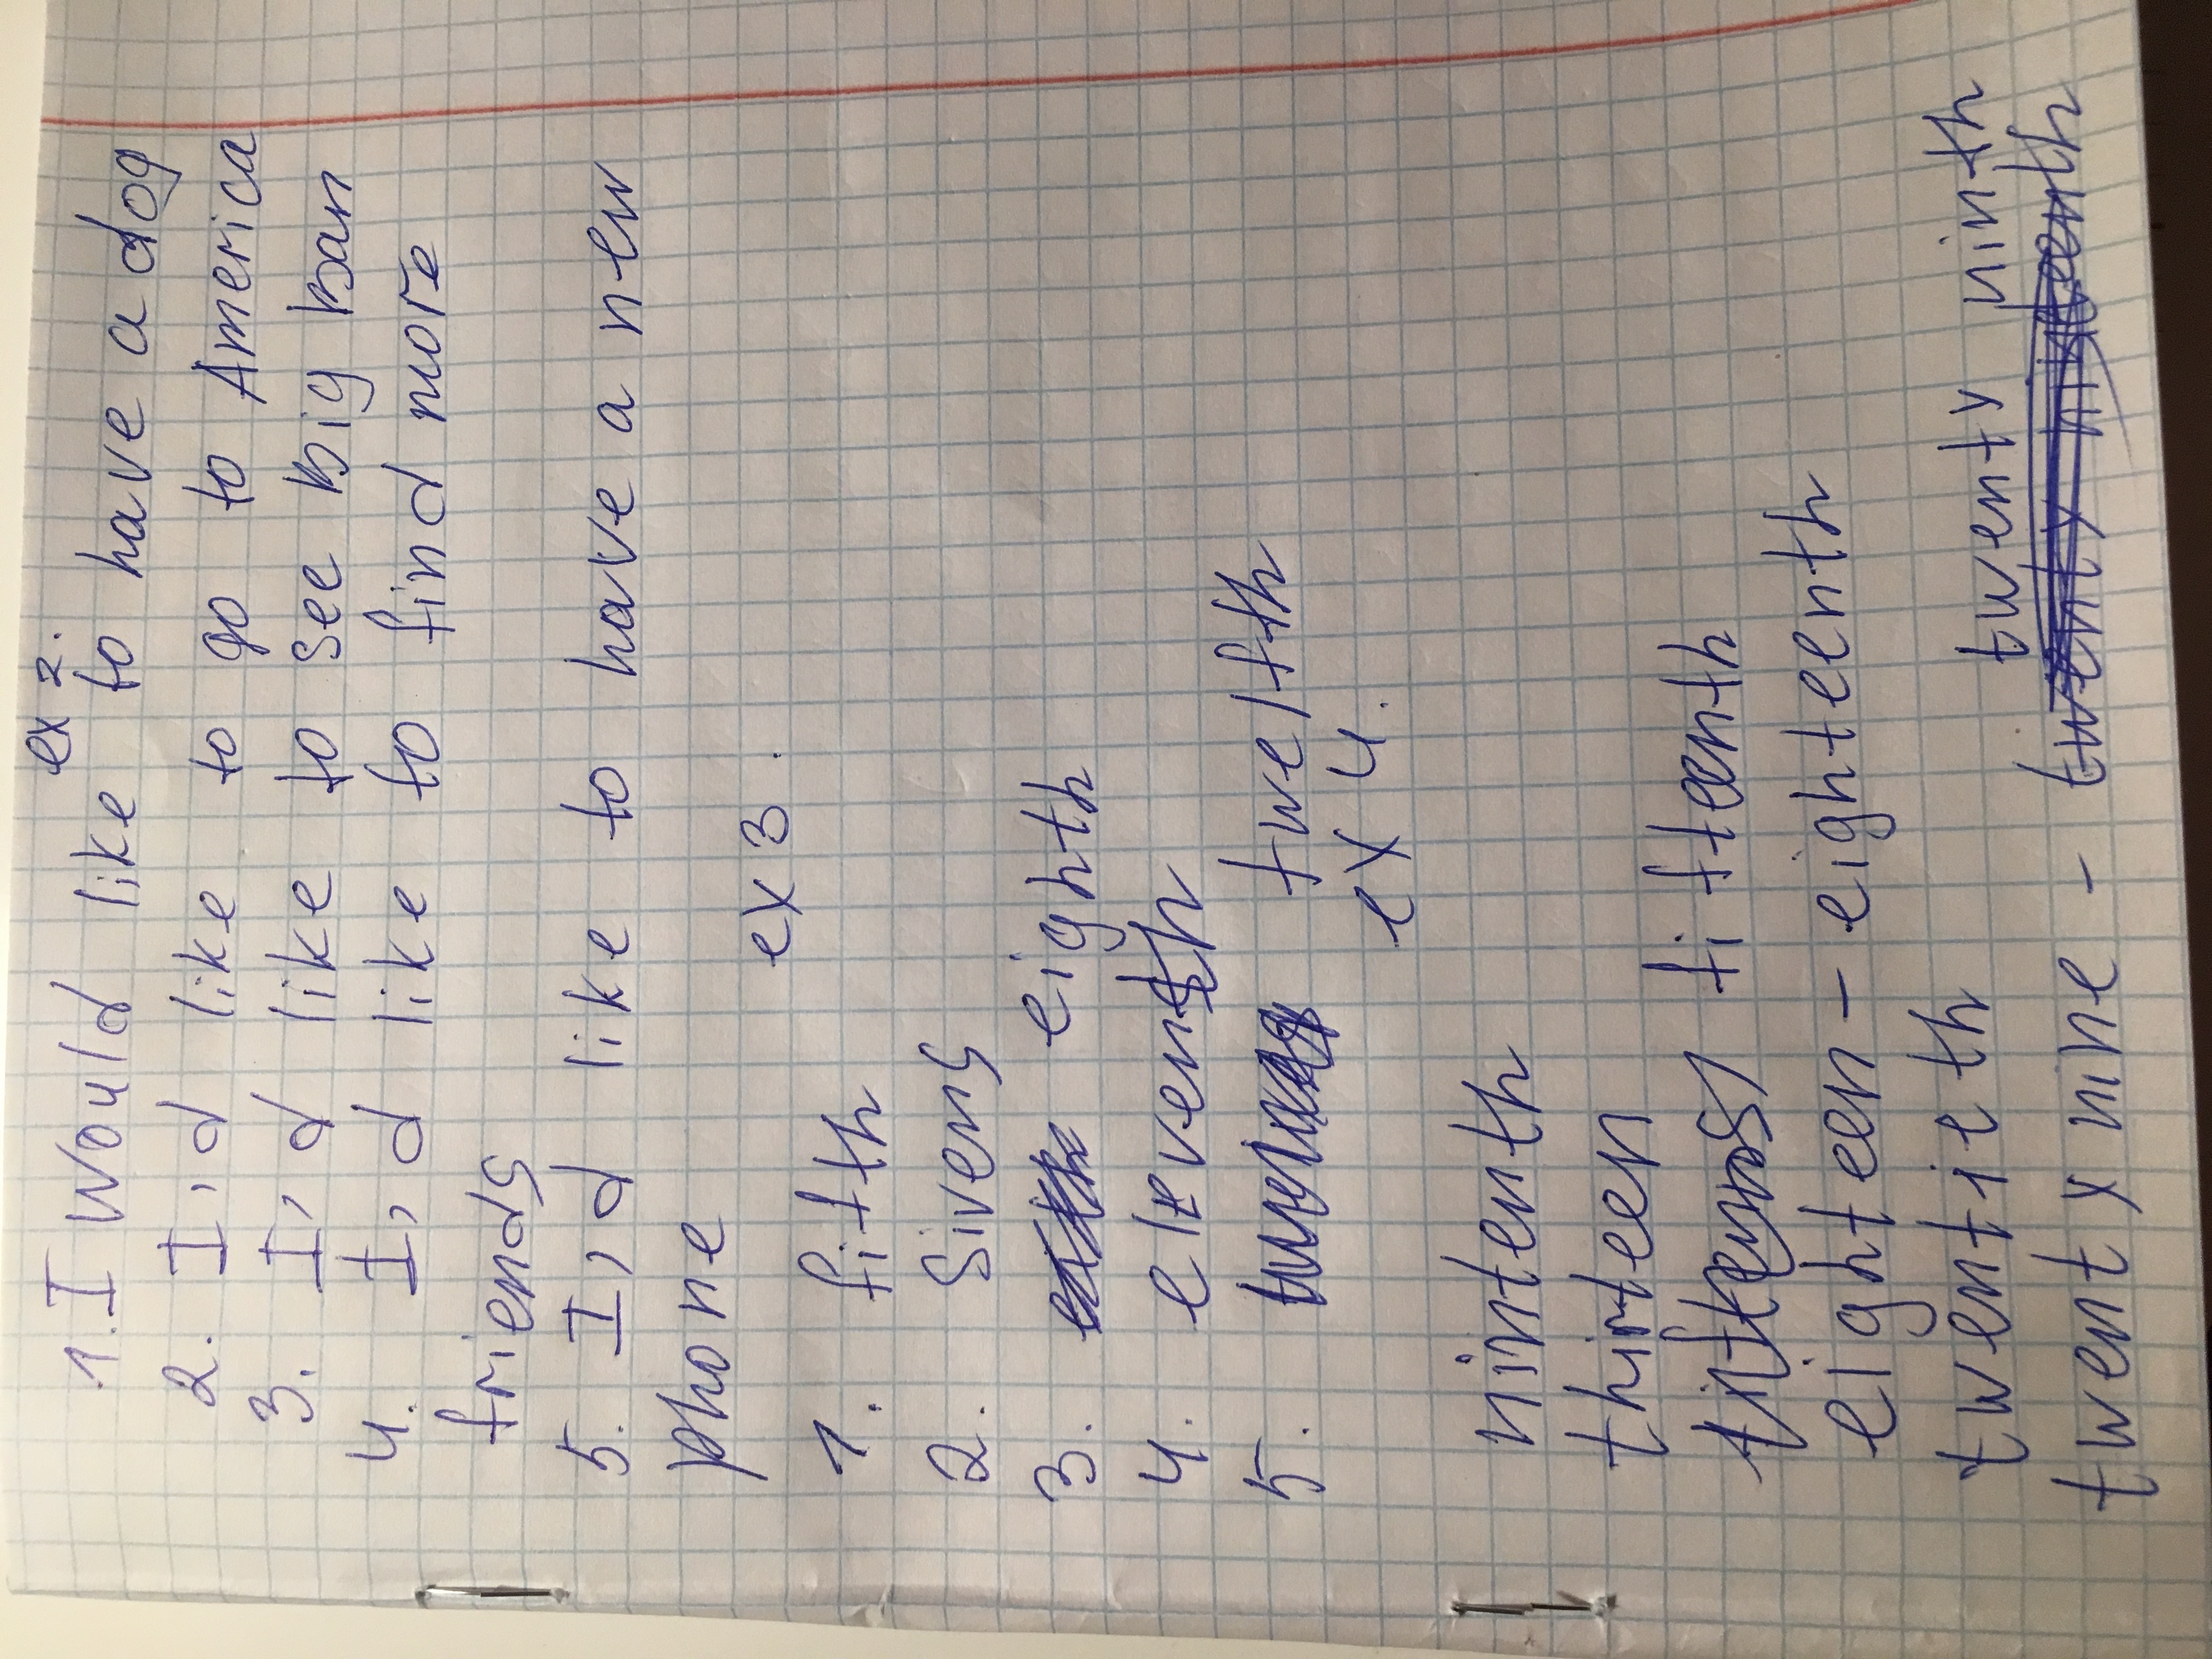 ex 2.
1. I Would like to have a dog
2. I,d like to go to America
3. I,d like to see big ban
4. I,d like to find more
friends
5. I,d like to have a new
phone
ex 3.
1. fifth
2. Sivens
3. eighth
4. eleventh
5. twelfth
ex 4.
nintenth
thirteen
fifteenth
eighteen - eighteenth
twentieth
twenty ninth
twenty nine -